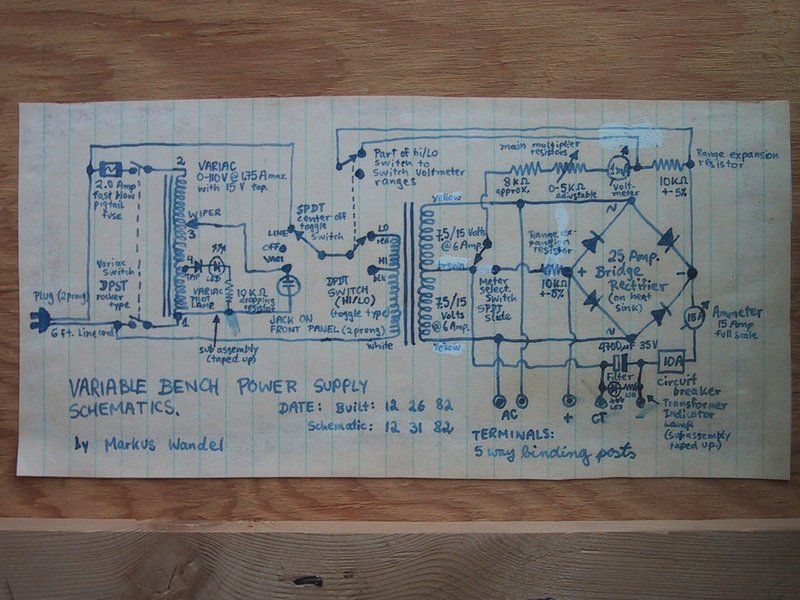 2.0 Amp
fast blow
pigtail
fuse
2
VARIAC
0-110V @ 1.75A max.
with 15 V tap.
WIPER
3
4
TAP
LED
Variac
Switch
DPST
rocker
type
VARIAC
Pilot
Lamp
10 KΩ
dropping
resistor
1
Plug (2prong)
6 ft. Line cord
sub assembly
(taped up)
SPDT
center off
toggle
Switch
LINE
OFF
VARI
JACK ON
FRONT PANEL (2prong)
Part of hi/Lo
Switch to
Switch Voltmeter
ranges
LO
red
HI
blk
DPDT
SWITCH
(HI/LO)
(toggle type)
White
yellow
7.5/15 Volts
@ 6 Amp.
brown
7.5/15
Volts
@ 6 Amp.
Yellow
main multiplier
resistors
8KΩ
approx.
0-5KΩ
adjustable
volt-
meter
10KΩ
+-5%
Range expansion
resistor
Range ex-
pansion
resistor
10KΩ
+-5%
Meter
select.
Switch
SPDT
Slide
N
25 Amp.
Bridge
Rectifier
(on heat
sink)
+
-
N
15A
Ammeter
15 Amp
full scale
4700µF 35V
Filter
LED
10A
Circuit
breaker
Transformer
Indicator
Lamp
(Subassembly
taped up.)
AC
+
CT
-
TERMINALS:
5 way binding posts
VARIABLE BENCH POWER SUPPLY
SCHEMATICS.
DATE: Built: 12 26 82
Schematic: 12 31 82
by Markus Wandel